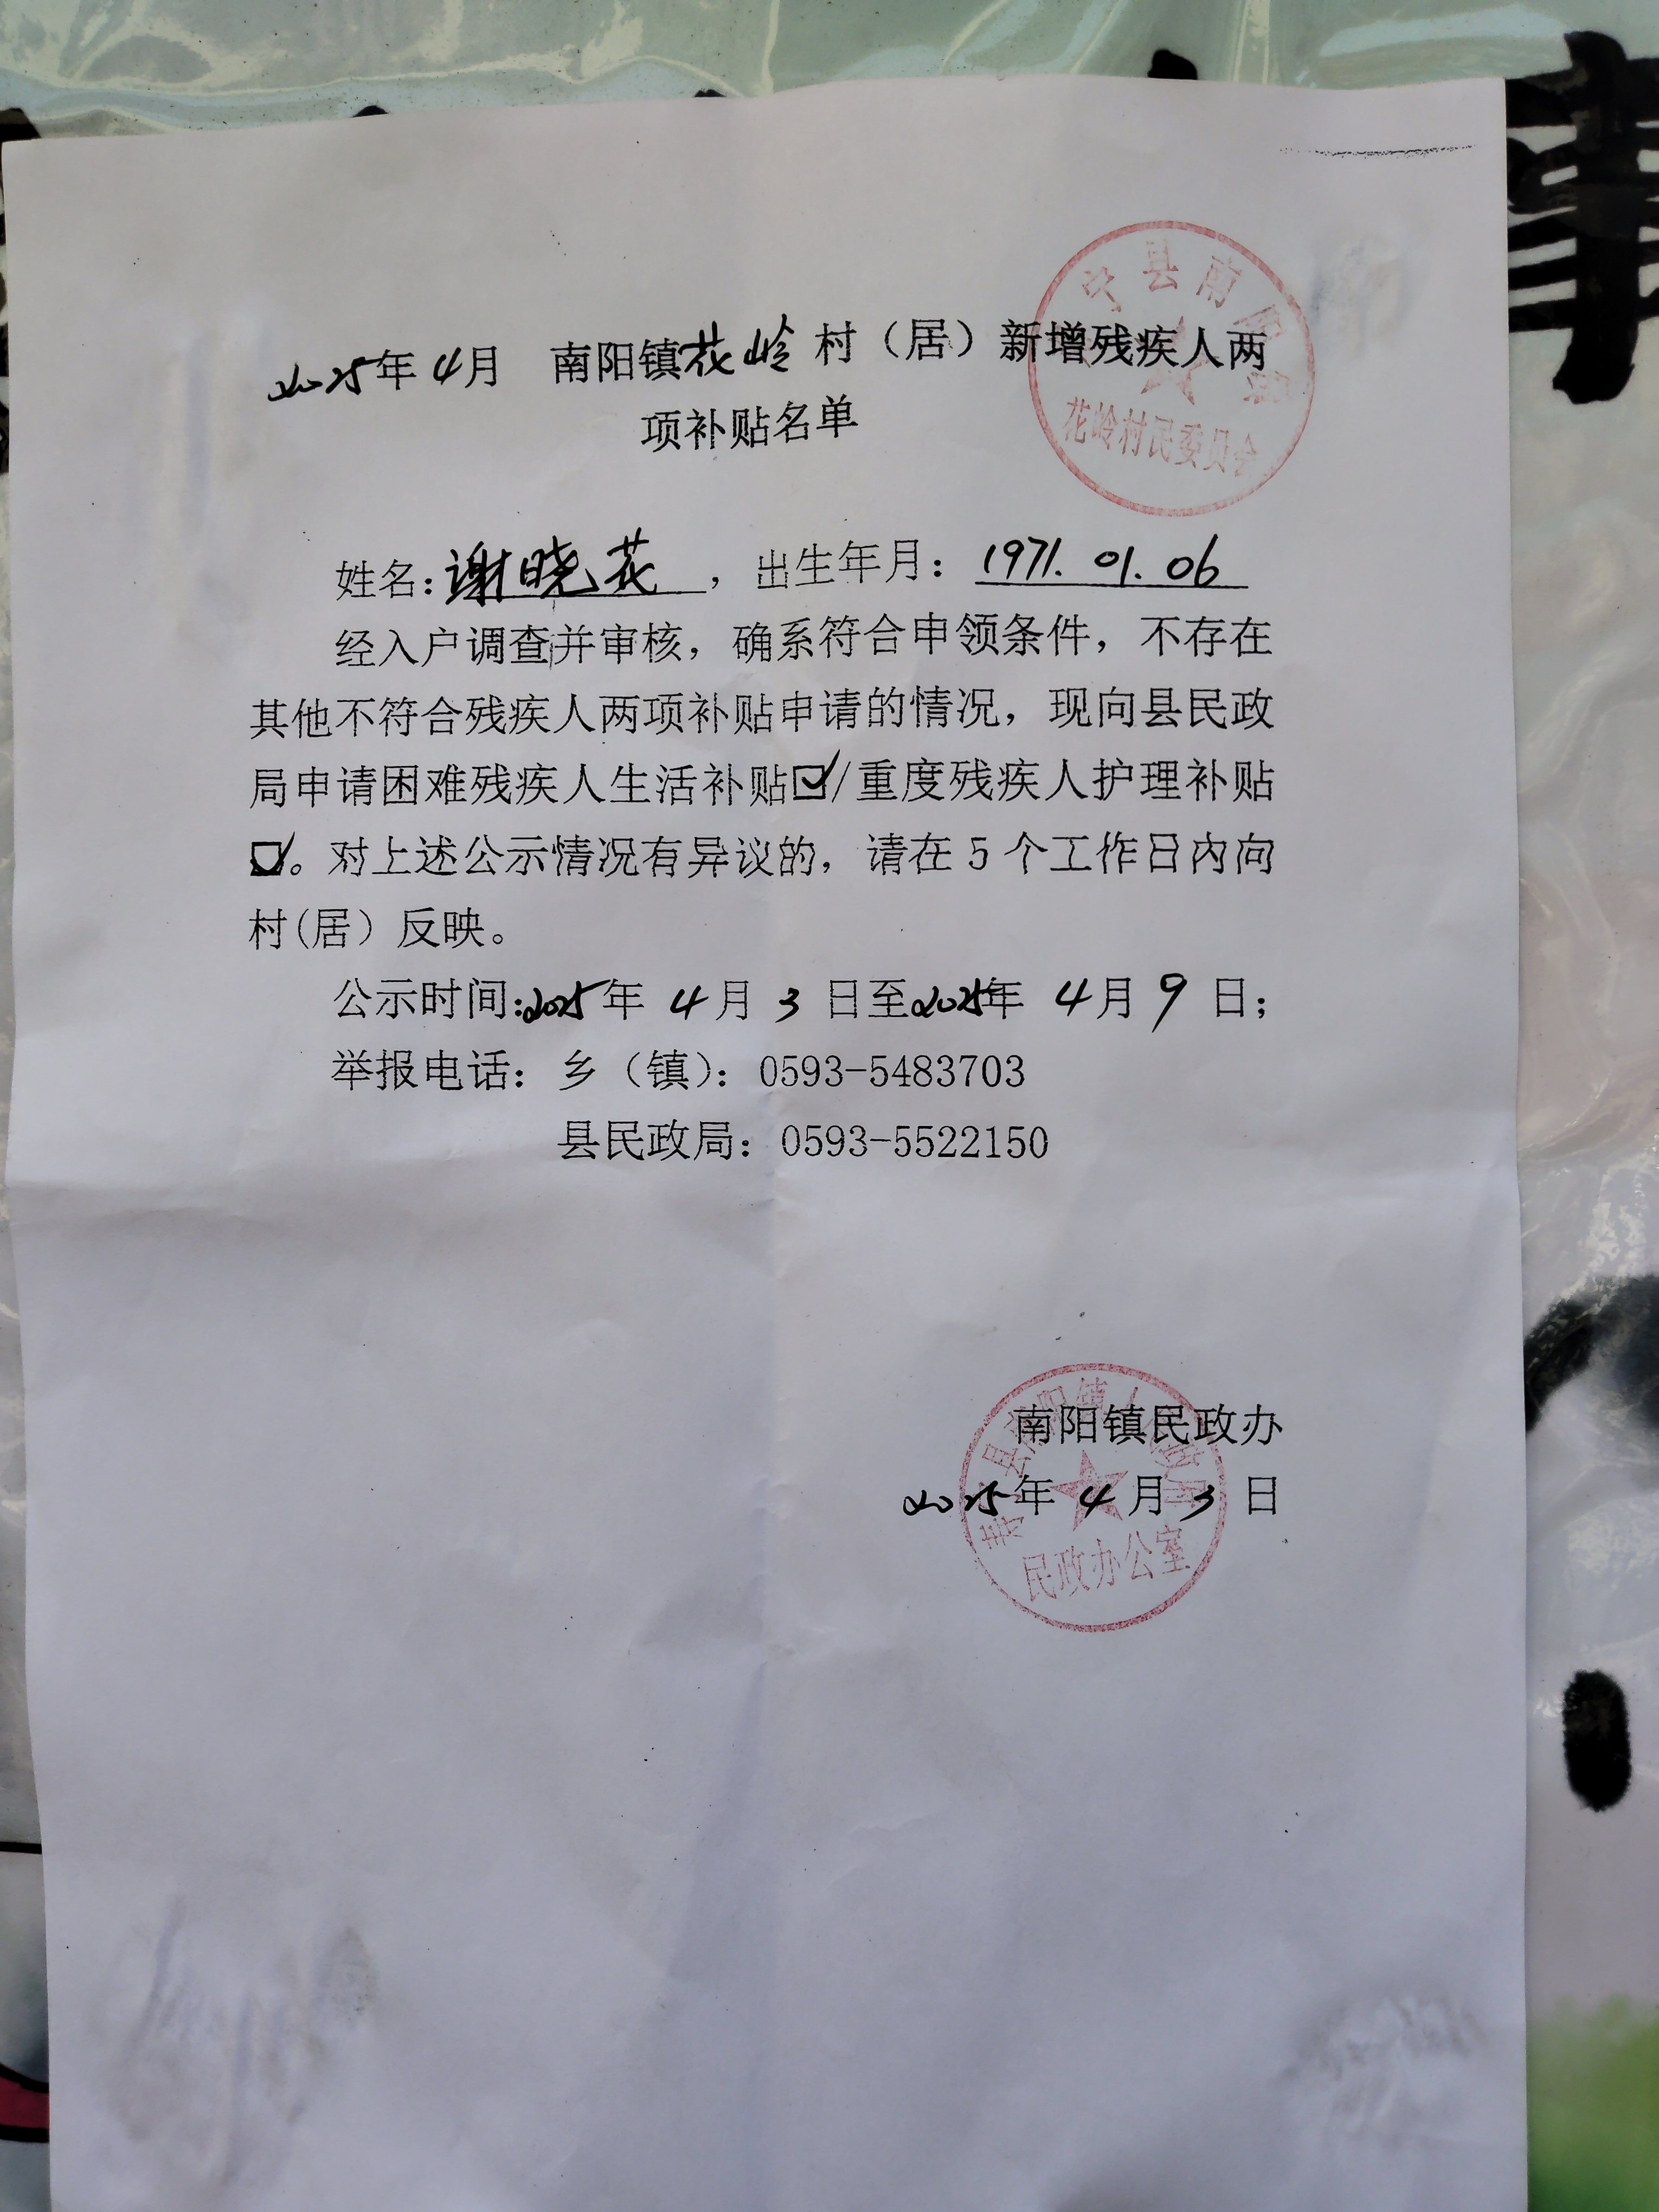 2025年4月 南阳镇花岭村（居）新增残疾人两
项补贴名单
县南阳镇
花岭村民委员会
姓名:谢晓花，出生年月：1971.01.06
经入户调查并审核，确系符合申领条件，不存在
其他不符合残疾人两项补贴申请的情况，现向县民政
局申请困难残疾人生活补贴☑/重度残疾人护理补贴
☑。对上述公示情况有异议的，请在5个工作日内向
村(居）反映。
公示时间:2025年 4月 3 日至2025年 4月 9 日；
举报电话：乡（镇）：0593-5483703
县民政局：0593-5522150
南阳镇民政办
2025年 4月 3 日
寿宁县南阳镇人民政府
民政办公室